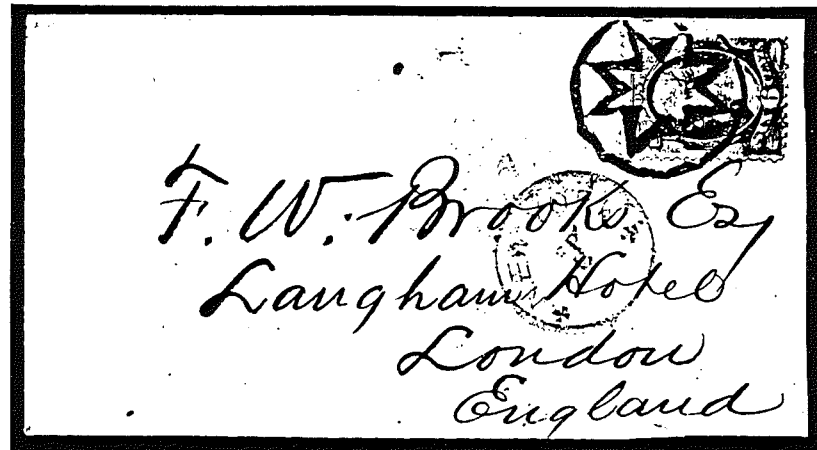 F. W. Brooks Esq
Langham Hotel
London
England